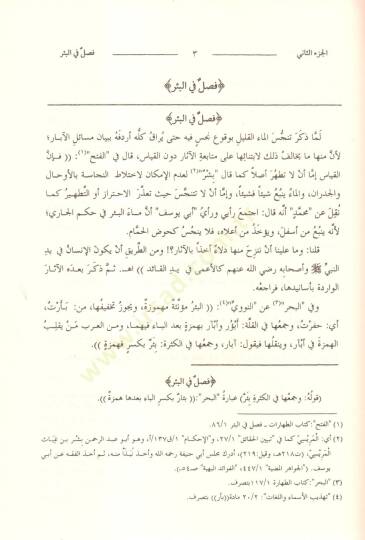 الجزء الثاني ٣ فصل في البئر
﴿فصلٌ في البئر﴾
﴿فصلٌ في البئر﴾
لَمَّا ذكَرَ تنجُّسَ الماء القليلِ بوقوعِ نجسٍ فيه حتى يُراقُ كلُّه أردفَهُ ببيان مسائلِ الآبار؛
لأنَّ منها ما يخالف ذلك لابتنائِها على متابعةِ الآثار دون القياس، قال في "الفتح"(١): ((فإنَّ
القياس إمَّا أنْ لا تطهُرَ أصلاً كما قال "بِشْرٌ"(٢) لعدم الإمكان لاختلاط النجاسة بالأوحال
والجدران، والماءُ ينبُعُ شيئاً فشيئاً، وإمَّا أنْ لا تتنجَّسَ حيث تعذَّرَ الاحتراز أو التَّطهيرُ كما
نُقِلَ عن "محمَّدٍ" أنَّه قال: اجتمعَ رأيي ورأيُ "أبي يوسف" أنَّ ماءَ البئر في حكم الجاري؛
لأنَّه ينبُعُ من أسفلَ، ويؤخَذُ من أعلاه، فلا ينجُسُ كحوض الحمَّام.
قلنا: وما علينا أنْ ننزَحَ منها دلاءً أخذاً بالآثار؟! ومن الطَّريقِ أنْ يكونَ الإنسانُ في يدِ
النبيِّ ﷺ وأصحابِه رضي الله عنهم كالأعمى في يدِ القائد)) اهـ. ثمَّ ذكَرَ بعدَهُ الآثارَ
الواردة بأسانيدها، فراجعْه.
وفي "البحر"(٣) عن "النوويِّ"(٤): ((البئرُ مؤنَّثةٌ مهموزةٌ، ويجوزُ تخفيفُها، من: بَأَرْتُ،
أي: حفَرْتُ، وجمعُها في القلَّة: أَبْؤُر وأَبْآر بهمزةٍ بعد الباء فيهما، ومن العرب مَنْ يقلِبُ
الهمزةَ في أَبْآر، وينقُلُها فيقول: آبار، وجمعُها في الكثرة: بِئَار بكسرٍ فهمزةٍ)).
﴿فصلٌ في البئر﴾
(قولُهُ: وجمعُها في الكثرةِ بِئَارٌ) عبارةُ "البحر": ((بئارٌ بكسرِ الباء بعدها همزةٌ)).
(١) "الفتح": كتاب الطهارات ـ فصل في البئر ٨٦/١.
(٢) أي: المَرِيْسيّ كما في "تبيين الحقائق" ٢٧/١، و"الإحكام" ١/ق١٣٧/أ، وهو أبو عبد الرحمن بشر بن غِيَاث
المَرِيْسِيّ، (ت٢١٨هـ، وقيل:٢١٩)، أدرك مجلس أبي حنيفة رحمه الله وأخذ نُبَذاً منه، ثم أخذ الفقه عن أبي
يوسف. ("الجواهر المضية" ٤٤٧/١، "الفوائد البهية" صـ٥٤ـ).
(٣) "البحر": كتاب الطهارة ١١٧/١ بتصرف.
(٤) "تهذيب الأسماء واللغات": ٢٠/٢ مادة((بأر)) بتصرف.